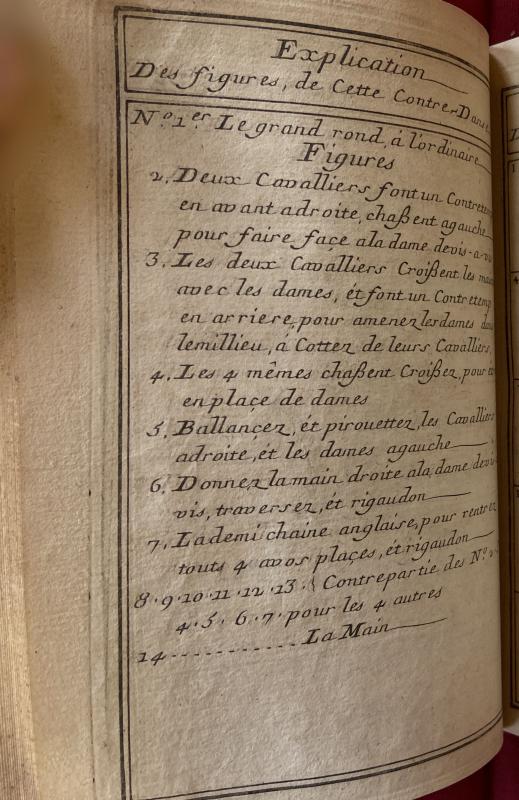 Explication
Des figures, de Cette Contre-Danse
N.o 1.er Le grand rond, á l'ordinaire
Figures
2. Deux Cavalliers font un Contretem
en avant adroite, chaßent agauche
pour faire façe ala dame devis-a-vis
3. Les deux Cavalliers Croißent les mains
avec les dames, ét font un Contretemp
en arriere, pour amenez les dames dans
lemillieu, á Cottez de leurs Cavalliers,
4. Les 4 mêmes chaßent Croißez, pour
en plaçe de dames
5. Ballançez, ét pirouettez, les Cavalliers
adroite, ét les dames agauche
6. Donnez la main droite ala dame devis
vis, traversez, ét rigaudon
7. La demi chaine anglaise, pour rentrez
touts 4 avos plaçes, ét rigaudon
8. 9. 10. 11. 12. 13. Contrepartie des N.o 2.
4. 5. 6. 7. pour les 4 autres
14 - - - - - - - - - - - La Main